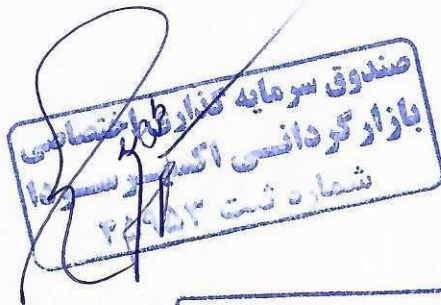 صندوق سرمایه گذاری اختصاصی
بازارگردانی اکسیر سودا
شماره ثبت